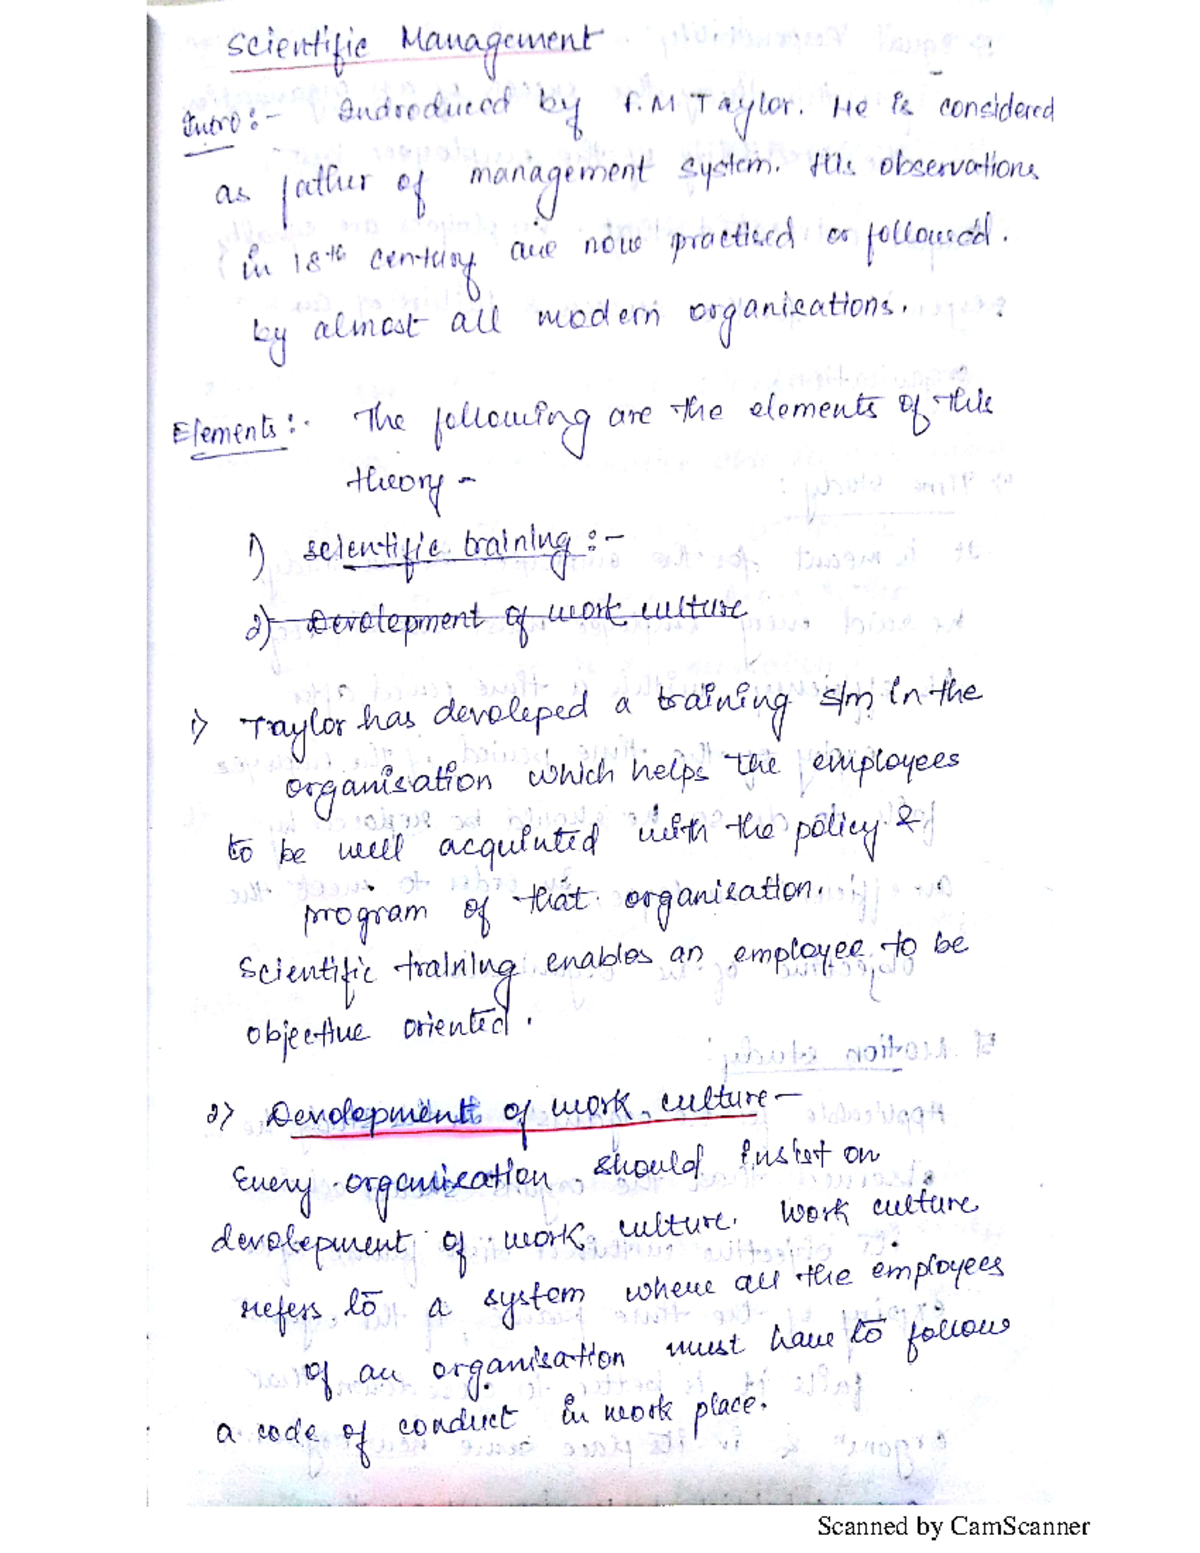 Scientific Management
Intro :- Indroduced by F.M Taylor. He is considered
as father of management system. His observations
in 18th century are now practised or followed.
by almost all modern organisations.
Elements :- The following are the elements of this
theory -
1) scientific training :-
2) Devolepment of work culture
1) Taylor has devoleped a training s/m in the
organisation which helps the employees
to be well acquinted with the policy &
program of that organisation.
Scientific training enables an employee to be
objective oriented.
2) Devolepment of work culture -
Every organisation should insist on
devolepment of work culture. Work culture
refers to a system where all the employees
of an organisation must have to follow
a code of conduct in work place.
Scanned by CamScanner